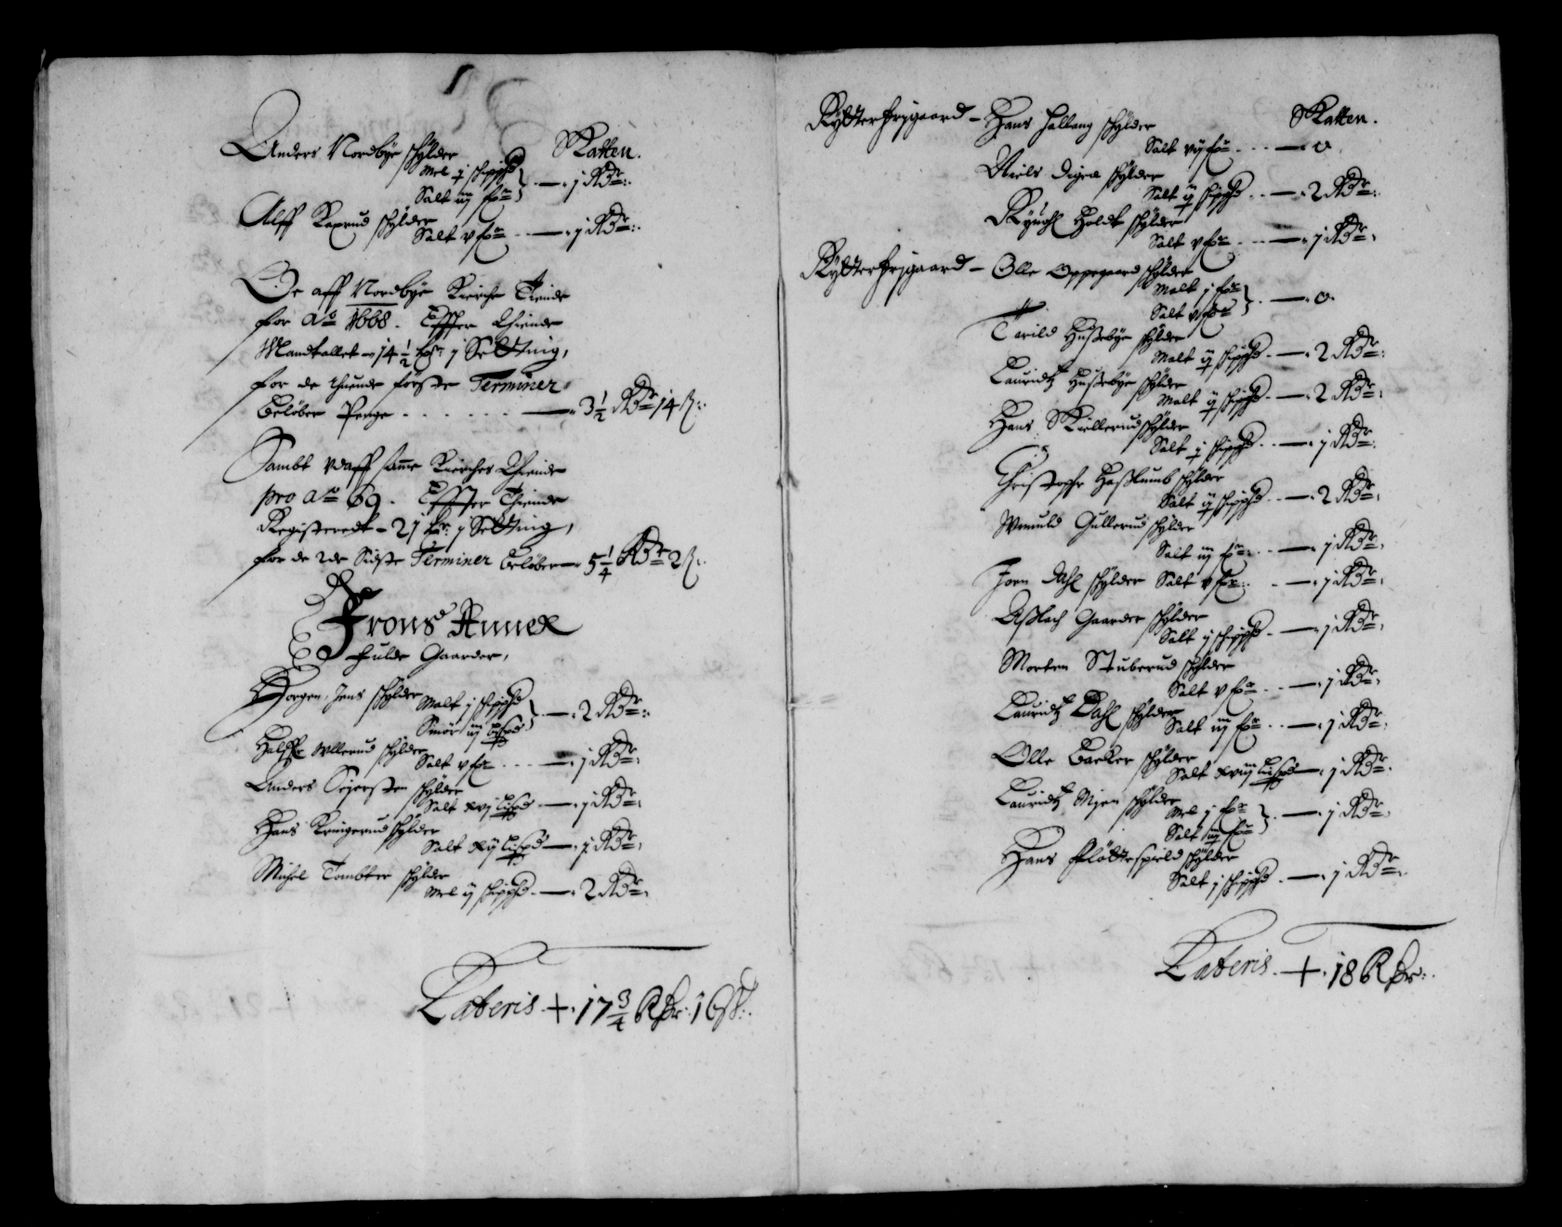 Anders Nordbye schylder Skatten.
Mel j schippd
Salt iij fr } — 1 Rdr:
Alff Kaxrud schylder
Salt v fr — 1 Rdr:
Oc aff Nordbye Kirche Tiende
for Ao 1668. Effter Thiende
Mandtallet - 14 1/2 j Setting,
for de tuende förste Terminer
Belöber Penge — 3 1/2 Rdr 14 ß:
Sambt vdaff samme Kirches Thiende
pro Ao 69. Effter Thiende
Registeredt - 21 j Setting,
for de 2de Sidste Terminer belöber - 5 1/4 Rdr 2 ß.
Frons Annex
Fulde Gaarder,
Horgen, Jens schylder Malt j schippd
Smör iij } — 2 Rdr:
Ullerud schylder
Salt v fr — 1 Rdr:
Anders schylder
Salt xvj lispd — 1 Rdr:
Hans schylder
Salt xij lispd — 1 Rdr:
Michel Tombter schylder
Mel ij schippd — 2 Rdr:
Lateris + 17 3/4 Rdr: 16 ß:
Rytterfrjgaard - Hans Hallang schylder Skatten.
Salt vij fr — 0.
Niels Digerud schylder
Salt schippd — 2 Rdr:
Holdt schylder
Salt v fr — 1 Rdr:
Rytterfrjgaard - Olle Oppegaard schylder
Malt j fr
Salt v fr } — 0.
Tarild Husebye schylder
Malt schippd — 2 Rdr:
Lauridtz Husebye schylder
Malt schippd — 2 Rdr:
Hans Skiellerud schylder
Salt schippd — 1 Rdr:
Christoffer Haslumb schylder
Salt schippd — 2 Rdr:
Gullerud schylder
Salt iij fr — 1 Rdr:
Joen Dahl schylder Salt v fr — 1 Rdr:
Aslach Gaarder schylder
Salt j schippd — 1 Rdr:
Morten Stuberud schylder
Salt v fr — 1 Rdr:
Lauridtz Dahl schylder
Salt iij fr — 1 Rdr:
Olle Backer schylder
Salt xviij lispd — 1 Rdr:
Lauridtz Mjen schylder
Mel j fr
Salt iij fr } — 1 Rdr:
Hans Flöttespield schylder
Salt j schippd — 1 Rdr:
Lateris + 18 Rdr: